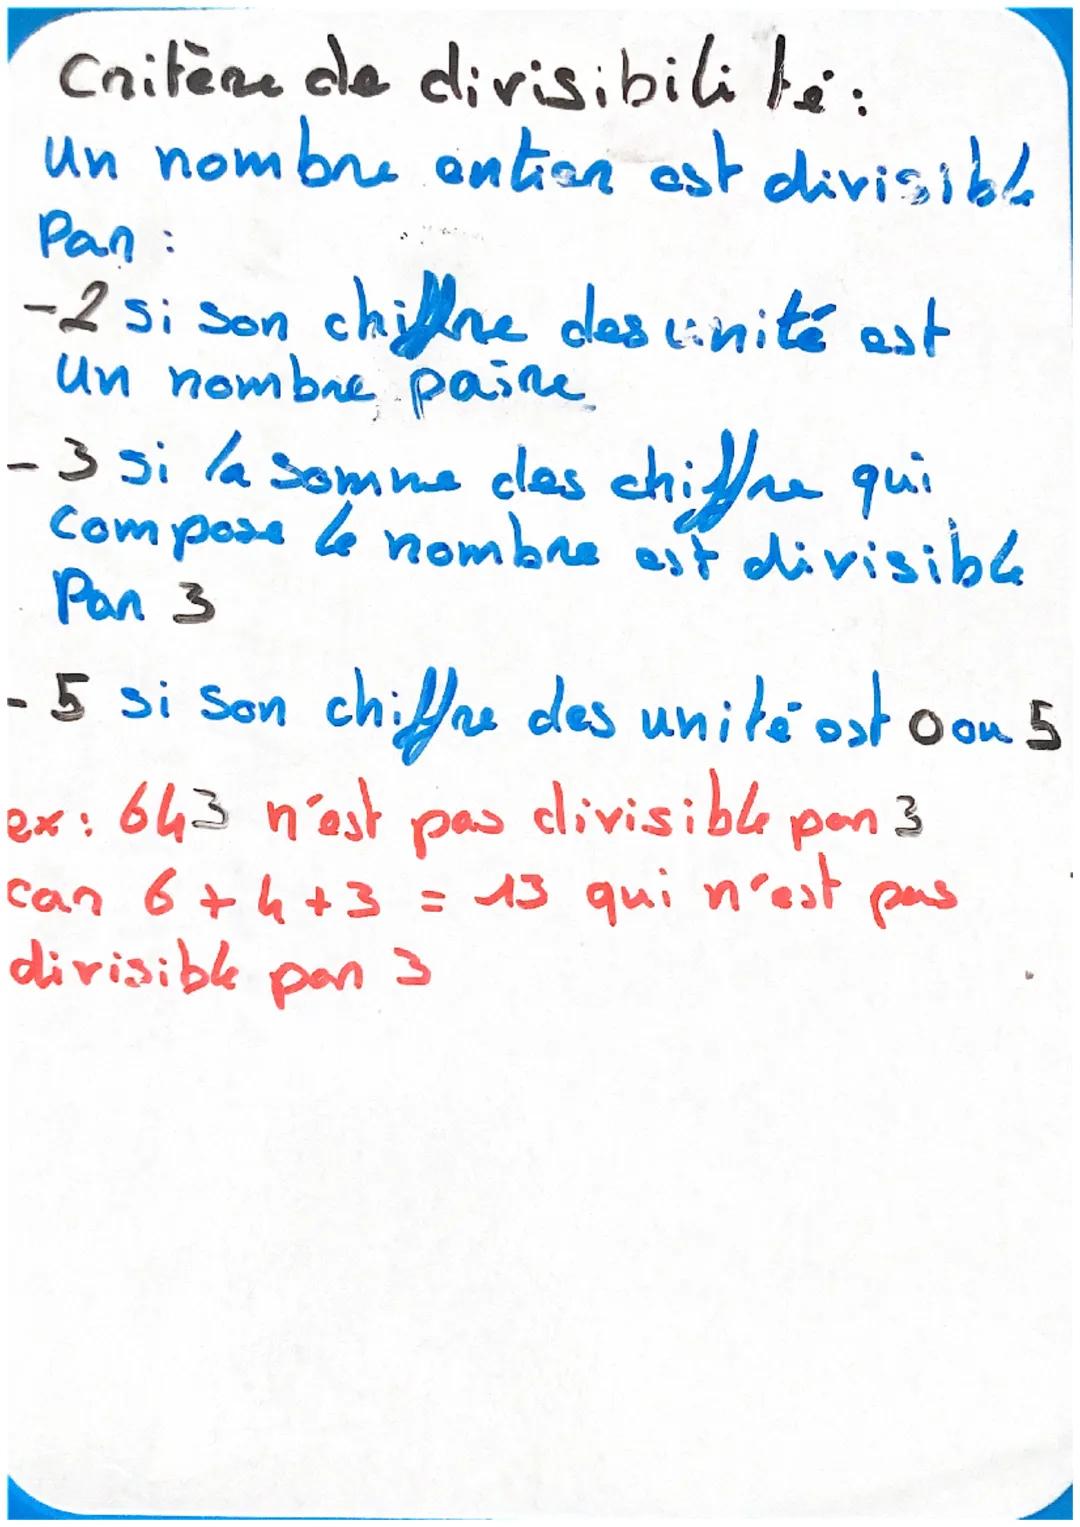 Critère de divisibilité :
Un nombre entier est divisible
Par :
-2 si son chiffre des unité est
Un nombre paire
- 3 si la somme des chiffre qui
compose le nombre est divisible
Par 3
- 5 si son chiffre des unité est 0 ou 5
ex : 643 n'est pas divisible par 3
car 6 + 4 + 3 = 13 qui n'est pas
divisible par 3